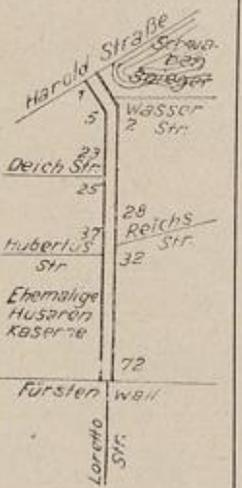 Harold Straße
Schwa-
nen
Spiegel
1
5
Wasser
2 Str.
23
Deich Str.
25
28
37
Reichs
Str.
Hubertus
Str
32
Ehemalige
Husaren
Kaserne
72
Fürsten Wall
Loretto
Str.